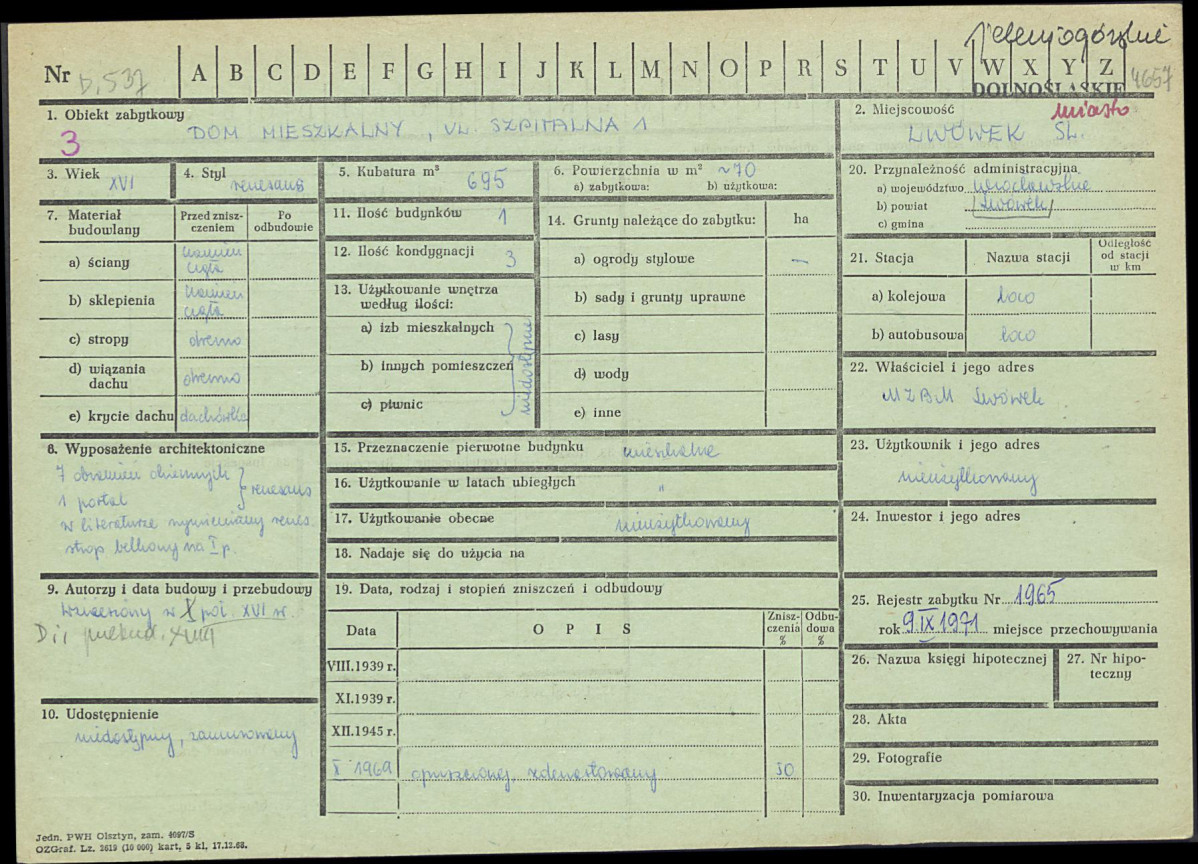 jeleniogórskie
Nr D.537 A B C D E F G H I J K L M N O P R S T U V W X Y Z 4657
DOLNOŚLĄSKIE
1. Obiekt zabytkowy
3 DOM MIESZKALNY, UL. SZPITALNA 1
2. Miejscowość miasto
LWÓWEK ŚL.
3. Wiek XVI
4. Styl renesans
5. Kubatura m³ 695
6. Powierzchnia w m² ~70
a) zabytkowa: b) użytkowa:
20. Przynależność administracyjna
a) województwo wrocławskie
b) powiat Lwówek
c) gmina
7. Materiał budowlany
Przed zniszczeniem
Po odbudowie
a) ściany kamień cegła
b) sklepienia kamień cegła
c) stropy drewno
d) wiązania dachu drewno
e) krycie dachu dachówka
11. Ilość budynków 1
12. Ilość kondygnacji 3
13. Użytkowanie wnętrza według ilości:
a) izb mieszkalnych
b) innych pomieszczeń
c) piwnic
niedostępne
14. Grunty należące do zabytku: ha
a) ogrody stylowe —
b) sady i grunty uprawne
c) lasy
d) wody
e) inne
21. Stacja
Nazwa stacji
Odległość od stacji w km
a) kolejowa loco
b) autobusowa loco
22. Właściciel i jego adres
MZBM Lwówek
8. Wyposażenie architektoniczne
7 obramień okiennych
1 portal
renesans
w literaturze wymieniany renes.
strop belkowy na I p.
15. Przeznaczenie pierwotne budynku mieszkalne
16. Użytkowanie w latach ubiegłych "
17. Użytkowanie obecne nieużytkowany
18. Nadaje się do użycia na
23. Użytkownik i jego adres
nieużytkowany
24. Inwestor i jego adres
9. Autorzy i data budowy i przebudowy
Wzniesiony w I poł. XVI w.
przebud. XVIII
10. Udostępnienie
niedostępny, zamurowany
19. Data, rodzaj i stopień zniszczeń i odbudowy
Data
O P I S
Zniszczenia %
Odbudowa %
VIII.1939 r.
XI.1939 r.
XII.1945 r.
X 1969 opuszczony, zdewastowany 50
25. Rejestr zabytku Nr 1965
rok 9 IX 1971 miejsce przechowywania
26. Nazwa księgi hipotecznej
27. Nr hipoteczny
28. Akta
29. Fotografie
30. Inwentaryzacja pomiarowa
Jedn. PWH Olsztyn, zam. 4697/S
OZGraf. Lz. 2619 (10 000) kart, 5 kl, 17.12.68.